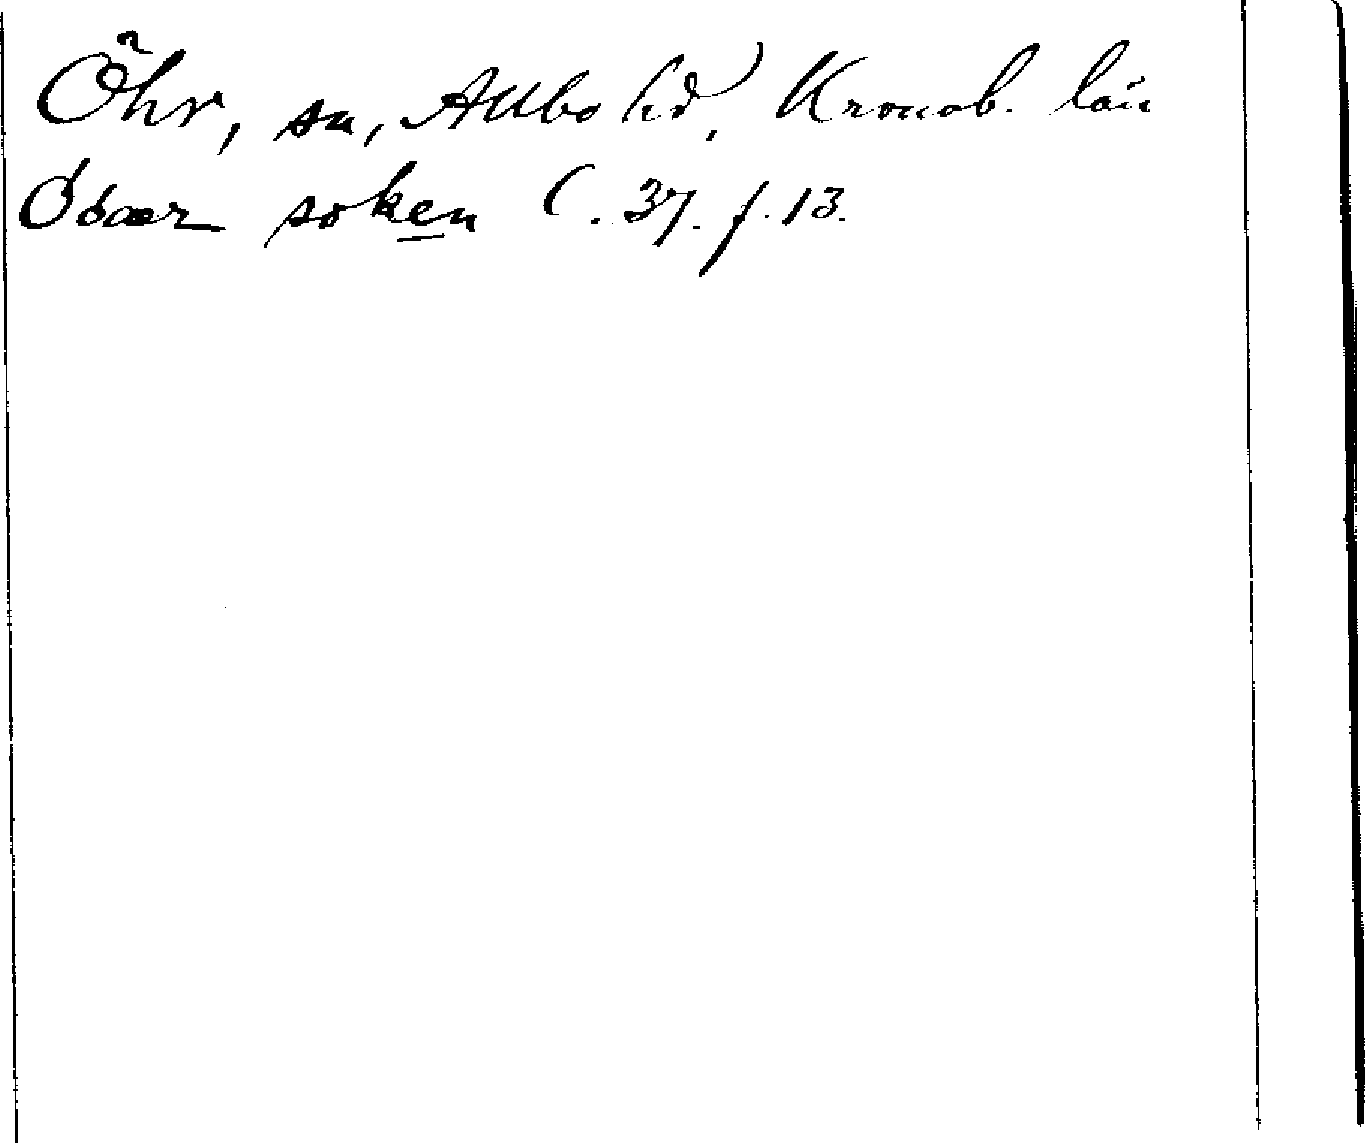 Öhr, sn, Allbo hd, Kronob. län
Ödær soken C. 37. f. 13.